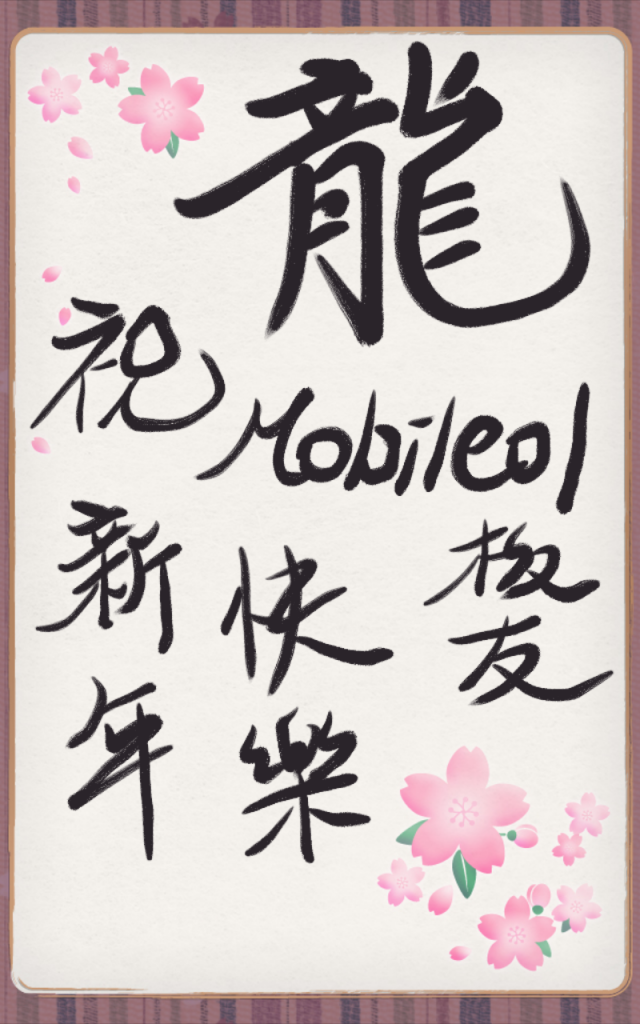 龍
祝
Mobile01
板友
新年
快樂